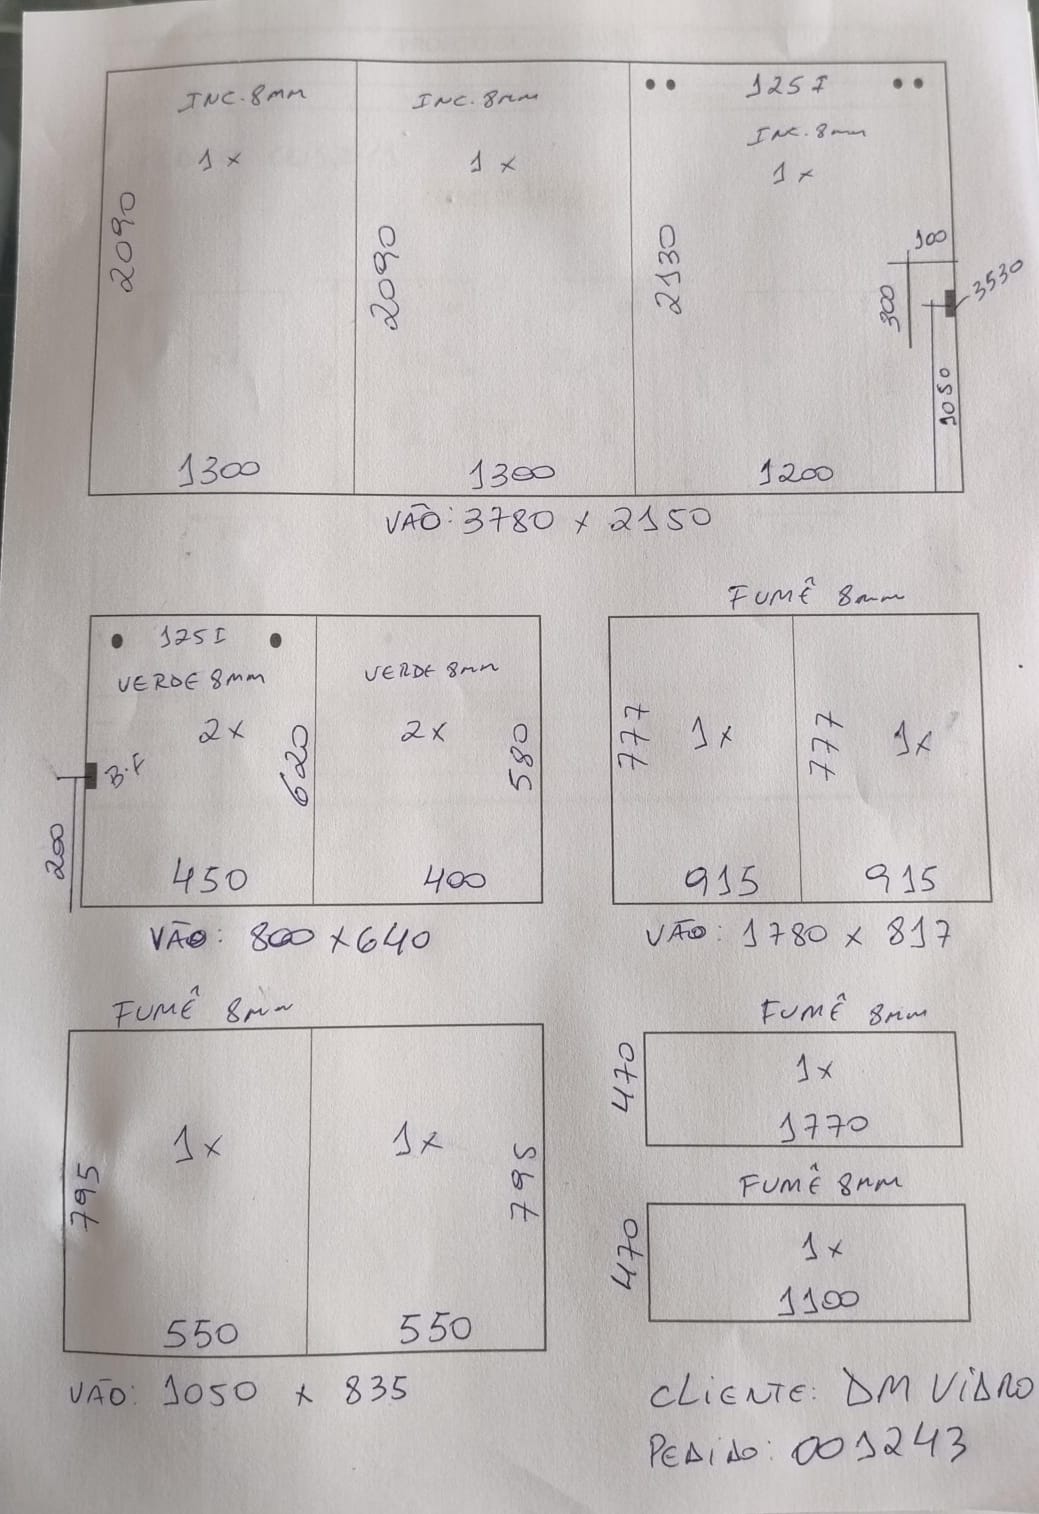 INC. 8mm
1x
2090
1300
INC. 8mm
1x
2090
1300
125 I
INC. 8mm
1x
2130
1200
100
300
3530
1050
VÃO: 3780 x 2150
125 I
VERDE 8mm
2x
620
B.F
200
450
VERDE 8mm
2x
580
400
VÃO: 800 x 640
FUMÊ 8mm
777
1x
915
777
1x
915
VÃO: 1780 x 817
FUMÊ 8mm
795
1x
550
1x
795
550
VÃO: 1050 x 835
FUMÊ 8mm
470
1x
1770
FUMÊ 8mm
470
1x
1100
CLIENTE: DM VIDRO
PEDIDO: 001243